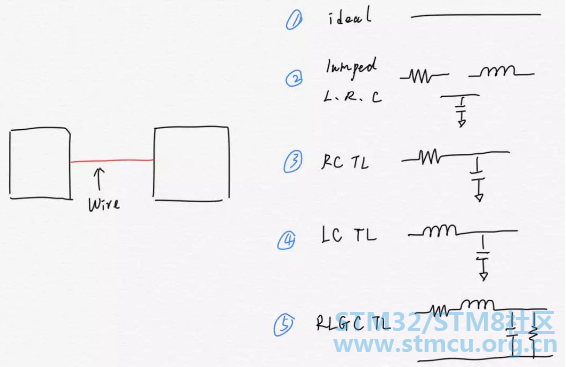 ① ideal
② lumped
L. R. C
③ RC TL
④ LC TL
⑤ RLGC TL
Wire
STM32/STM8社区
www.stmcu.org.cn